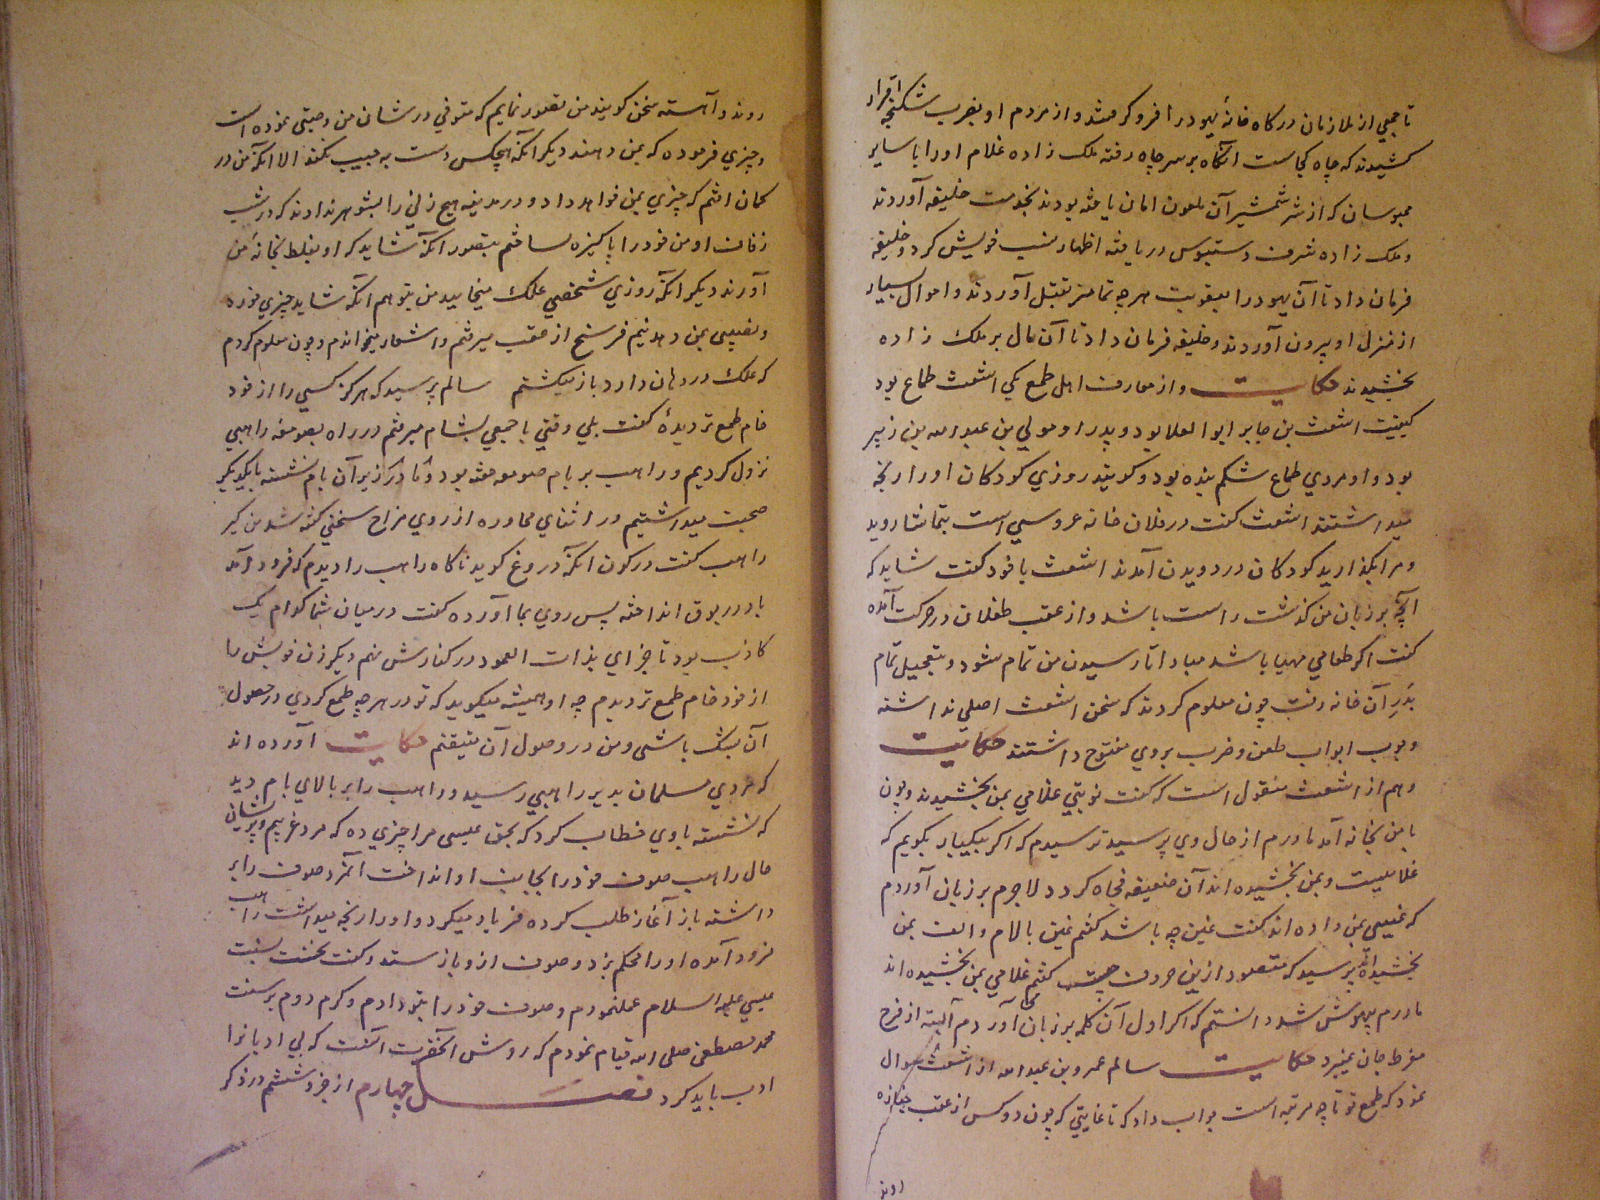 تا جمعی از ملازمان در کاه خانهٔ یهود را فرو کرفتند و از مردم او بضرب شکنجه اقرار
کشیدند که چاه کجاست انکاه بر سر چاه رفته ملک زاده غلام او را با سایر
محبوسان که از شر شمشیر آن ملعون امان یافته بودند بخدمت خلیفه آوردند
و ملک زاده شرف دستبوس دریافته اظهار نسب خویش کرد و خلیفه
فرمان داد تا آن یهود را بعقوبت هر چه تمامتر بقتل آوردند و اموال بسیار
از منزل او بیرون آوردند و خلیفه فرمان داد تا آن مال بر ملک زاده
بخشیدند حکایت و از معارف اهل طمع یکی اشعث طماع بود
کنیت اشعث بن جابر ابو العلا بود و پدر او مولی بن عبد الله بن زبیر
بود و او مردی طماع شکم بنده بود و کویند روزی کودکان او را رنجه
میداشتند اشعث کفت در فلان خانه عروسی است بتماشا روید
و مرا بکذارید کودکان در دویدن آمدند اشعث با خود کفت شاید که
آنچه بر زبان من کذشت راست باشد و از عقب طفلان در حرکت آمده
کفت اکر طعامی مهیا باشد مبادا تا رسیدن من تمام شود و بتعجیل تمام
بدر آن خانه رفت چون معلوم کردند که سخن اشعث اصلی نداشته
و بوب ابواب طعن و ضرب بروی مفتوح داشتند حکایت
و هم از اشعث منقول است که کفت نوبتی غلامی بمن بخشیدند و چون
با من بخانه آمد مادرم از حال وی پرسید ترسیدم که اکر بیکبار بکویم که
غلامیست و بمن بخشیده اند آن ضعیفه فجاه کردد لاجرم بر زبان آوردم
که غینی بمن داده اند کفت غین چه باشد کفتم غین بالام و الف بمن
بخشیده اند پرسید که مقصود ازین حروف چیست کفتم غلامی بمن بخشیده اند
مادرم بیهوش شد دانستم که اکر اول آن کلمه بر زبان آوردم البته از فرح
مفرط جان میبرد حکایت سالم عمرو بن عبد الله از اشعث سوال
نمود که طمع تو تا چه مرتبه است جواب داد که تا غایتی که چون دو کس از عقب جنازه
روند
روند و آهسته سخن کویند من تصور نمایم که متوفی در شان من وصیتی نموده است
و چیزی فرموده که بمن دهند دیکر انکه هیچکس دست به جیب نکند الا انکه من در
کمان افتم که چیزی بمن خواهد داد و در مدینه هیچ زنی را بشوهر ندادند که در شب
زفاف او من خود را پاکیزه نساختم بتصور انکه شاید که او بغلط بخانهٔ من
آورند دیکر انکه روزی شخصی علک میخایید من بتوهم انکه شاید چیزی خورده
و نصیبی بمن دهد نیم فرسنخ از عقب میرفتم و اشعار میخواندم و چون معلوم کردم
که علک در دهان دارد باز میکشتم سالم پرسید که هرکز کسی را از خود
خام طمع تر دیدهٔ کفت بلی وقتی با جمعی بشام میرفتم در راه بصومعهٔ راهبی
نزول کردیم و راهب بر بام صومعه خفته بود و ما در زیر آن بام نشسته با یکدیکر
صحبت میداشتیم در اثنای محاوره از روی مزاح سخنی کفته شد من کیر
راهب کفت در کون انکه دروغ کوید ناکاه راهب را دیدم که فرود آمد
باد در بوق انداخته پس روی بما آورده کفت در میان شما کدام یک
کاذب بود تا جزای بذات العمود در کنارش نهم دیکر زن خویش را
از خود خام طمع تر دیدم چه او همیشه میکوید که تو در هر چه طمع کردی در حصول
آن بشک باشی و من در وصول آن متیقنم حکایت آورده اند
که مردی مسلمان بدیر راهبی رسید و راهب را بر بالای بام دید
که نشسته با وی خطاب کرد که بحق عیسی مرا چیزی ده که مرد غریبم و پریشان
حال راهب صوف خود را بجانب او انداخت آنمرد صوف را بر
داشته باز آغاز طلب کرده فریاد میکرد و او را رنجه میداشت راهب
فرود آمده او را محکم بزد و صوف ازو باز ستد و کفت نخست بسنت
عیسی علیه السلام عمل نمودم و صوف خود را بتو دادم و کرم دوم بر سنت
محمد مصطفی صلی الله قیام نمودم که روش آنحضرت آنست که بی ادبانرا
ادب باید کرد فصل چهارم از جزو ششم در ذکر